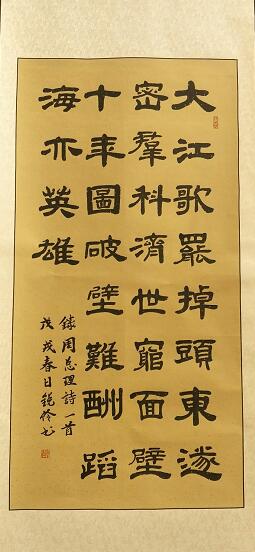 大江歌罷掉頭東邃
密羣科濟世窮面壁
十年圖破壁難酬蹈
海亦英雄
錄周总理詩一首
戊戌春日书